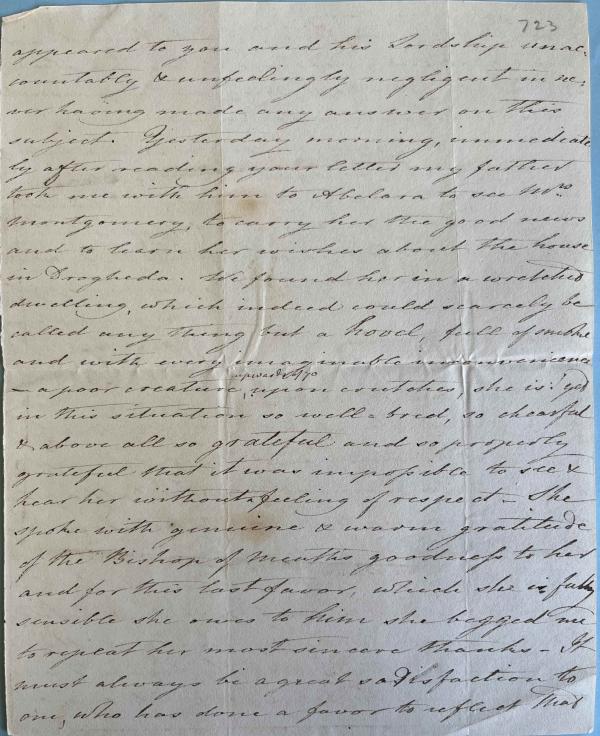 723
appeared to you and his Lordship unac-
countably & unfeelingly negligent in ne-
ver having made any answer on this
subject. Yesterday morning, immediate
ly after reading your letter my father
took me with him to Abelara to see Mrs
Montgomery, to carry her the good news
and to learn her wishes about the house
in Drogheda. We found her in a wretched
dwelling, which indeed could scarcely be
called any thing but a hovel, full of smoke
and with every imaginable inconvenience
upwards of 70
– a poor creature, upon crutches, she is! yet
in this situation so well-bred, so chearful
& above all so grateful and so properly
grateful that it was impossible to see &
hear her without feeling of respect – She
spoke with genuine & warm gratitude
of the Bishop of Meaths goodness to her
and for this last favor, which she is fully
sensible she owes to him she begged me
to repeat her most sincere thanks – It
must always be a great satisfaction to
one, who has done a favor to reflect that